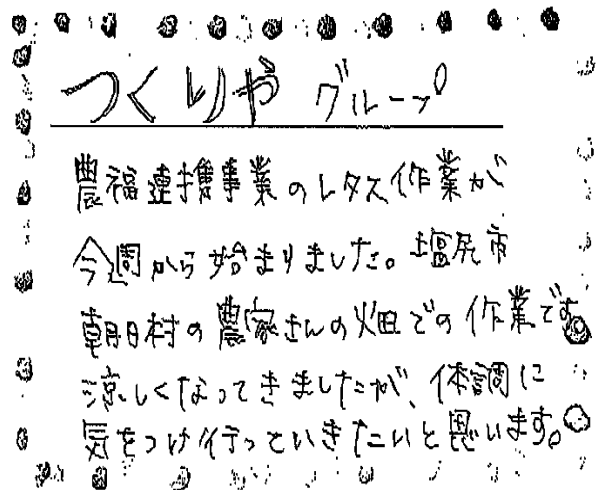 つくりや グループ
農福連携事業のレタス作業が
今週から始まりました。塩尻市
朝日村の農家さんの畑での作業です。
涼しくなってきましたが、体調に
気をつけ行っていきたいと思います。